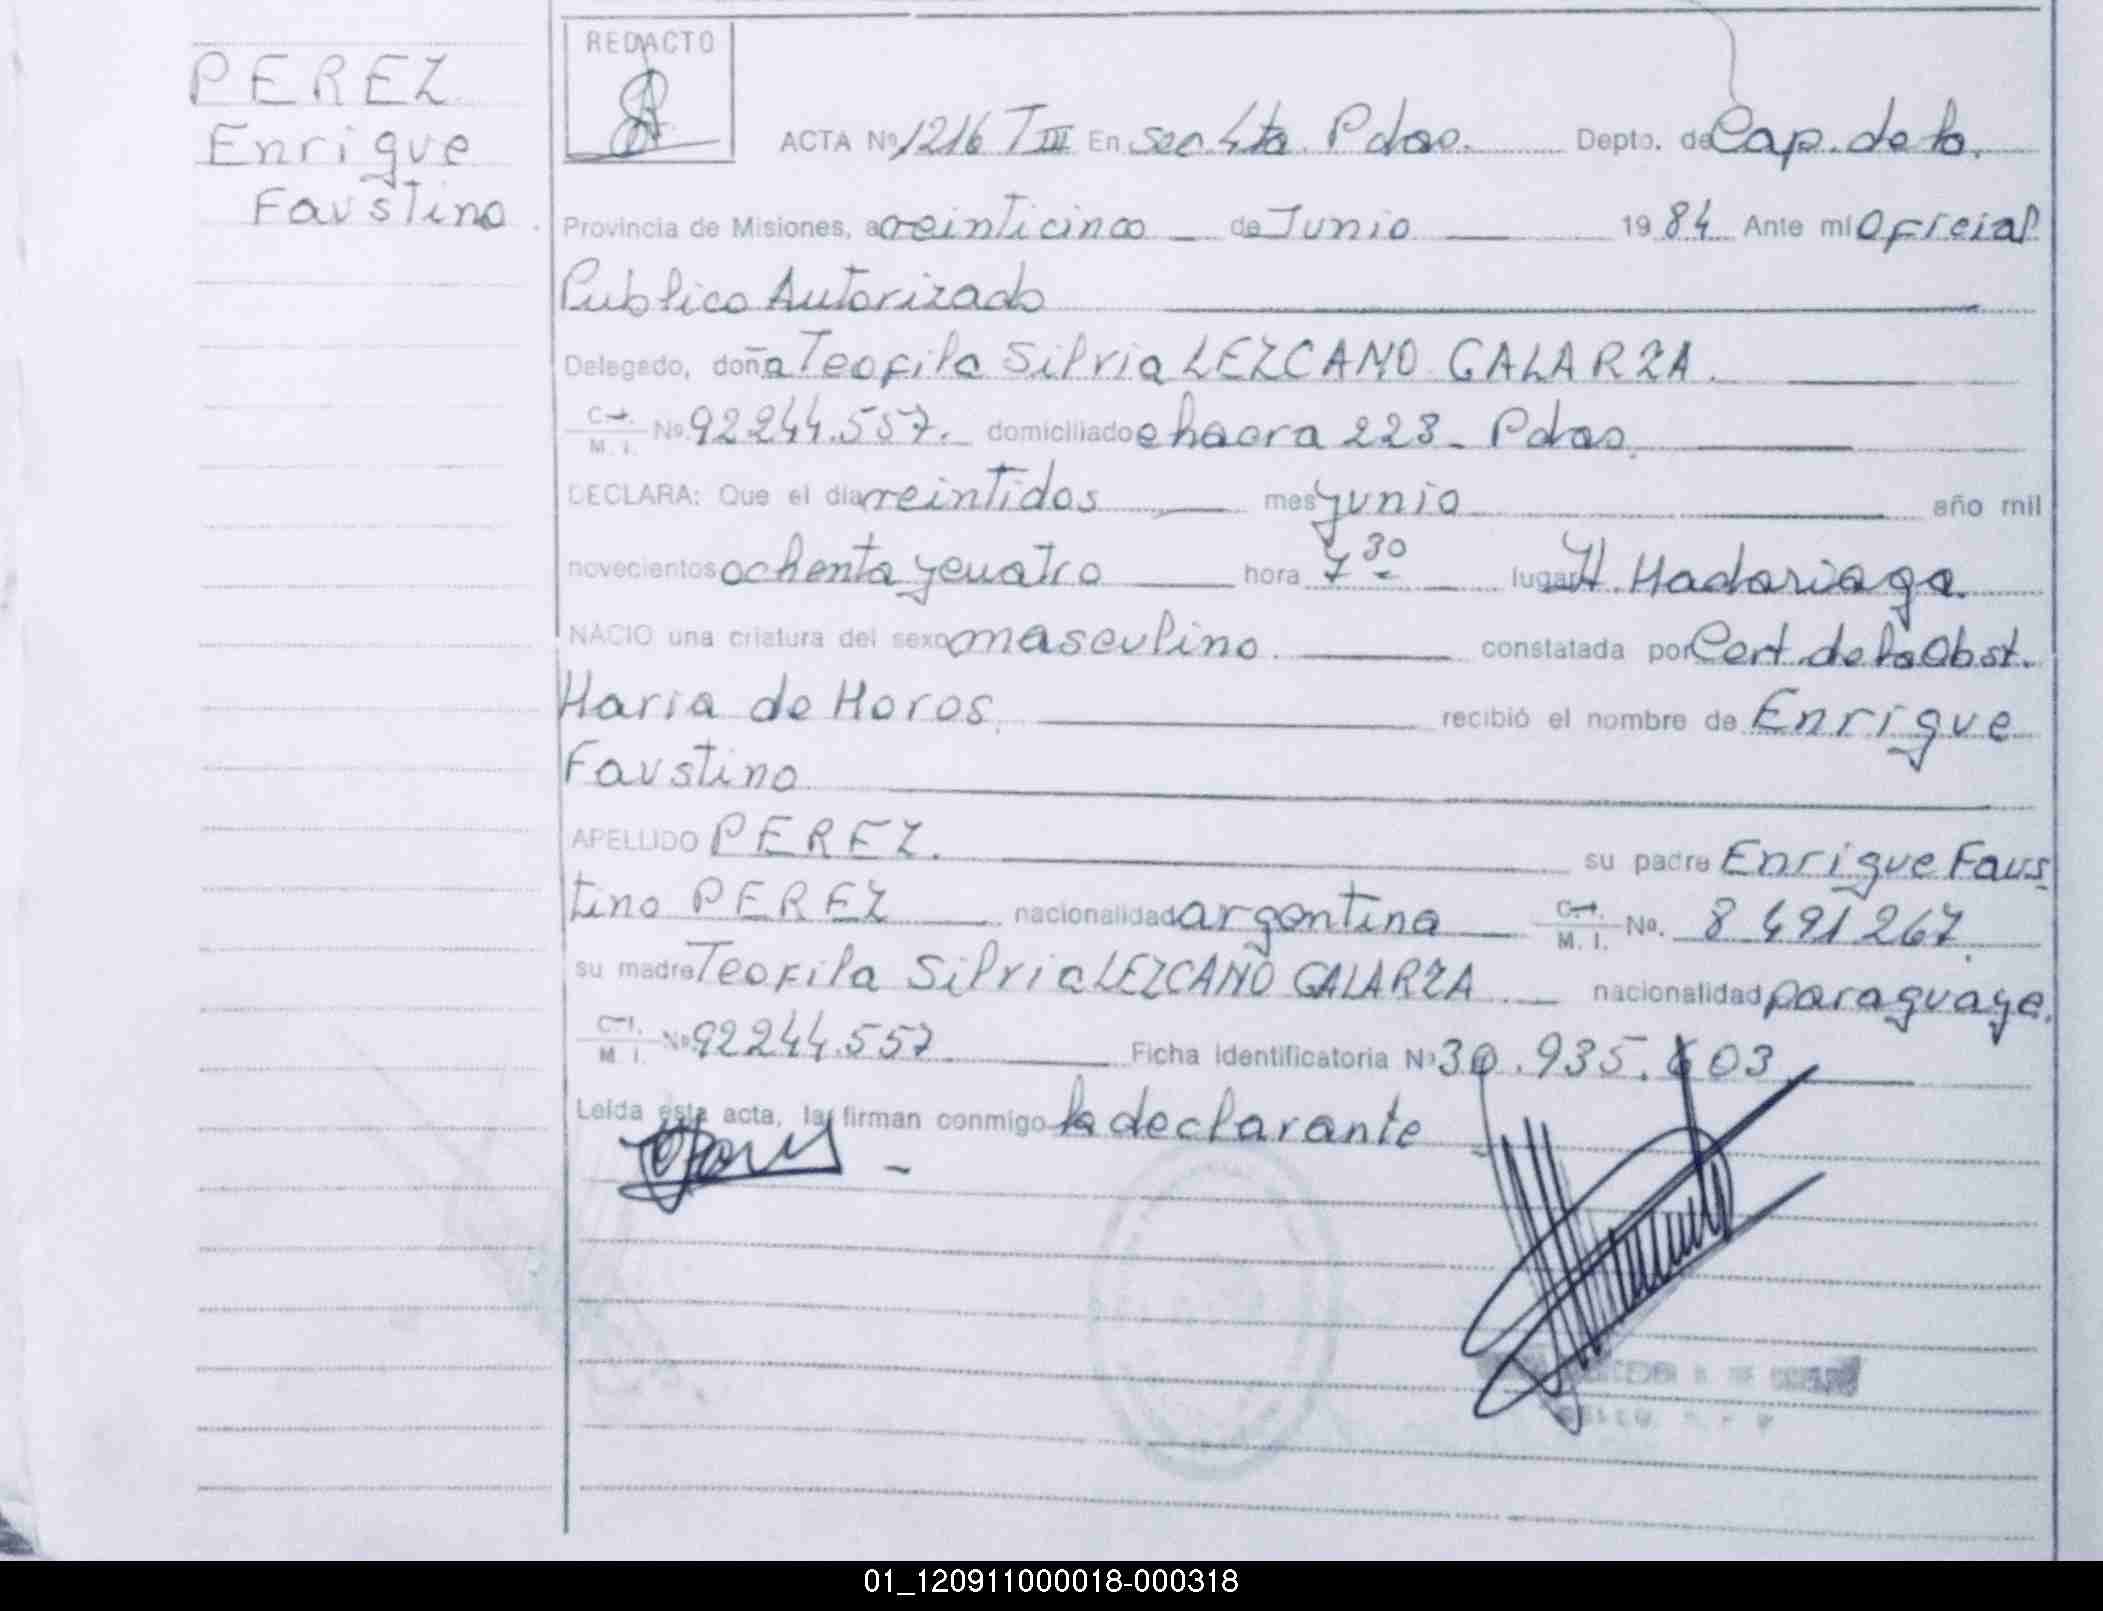 PEREZ
Enrique
Faustino.
REDACTO
ACTA Nº 1216 T III En Sec 4ta. Pdas. Depto. de Cap. de la.
Provincia de Misiones, a veinticinco de Junio 1984 Ante mí Oficial
Publico Autorizado
Delegado, doña Teofila Silvia LEZCANO GALARZA.
C.I. M. I. Nº 92244.557. domiciliado chacra 223 - Pdas.
DECLARA: Que el día veintidos mes junio año mil
novecientos ochenta y cuatro hora 7 30 lugar H. Madariaga.
NACIO una criatura del sexo masculino. constatada por Cert. de la Obst.
Maria de Moros. recibió el nombre de Enrique
Faustino
APELLIDO PEREZ. su padre Enrique Faus
tino PEREZ nacionalidad argentina C.I. M. I. No. 8 491 267.
su madre Teofila Silvia LEZCANO GALARZA nacionalidad paraguaya.
C.I. M I. Nº 92244.557 Ficha Identificatoria Nº 30.935.603
Leída esta acta, la firman conmigo la declarante
01_120911000018-000318